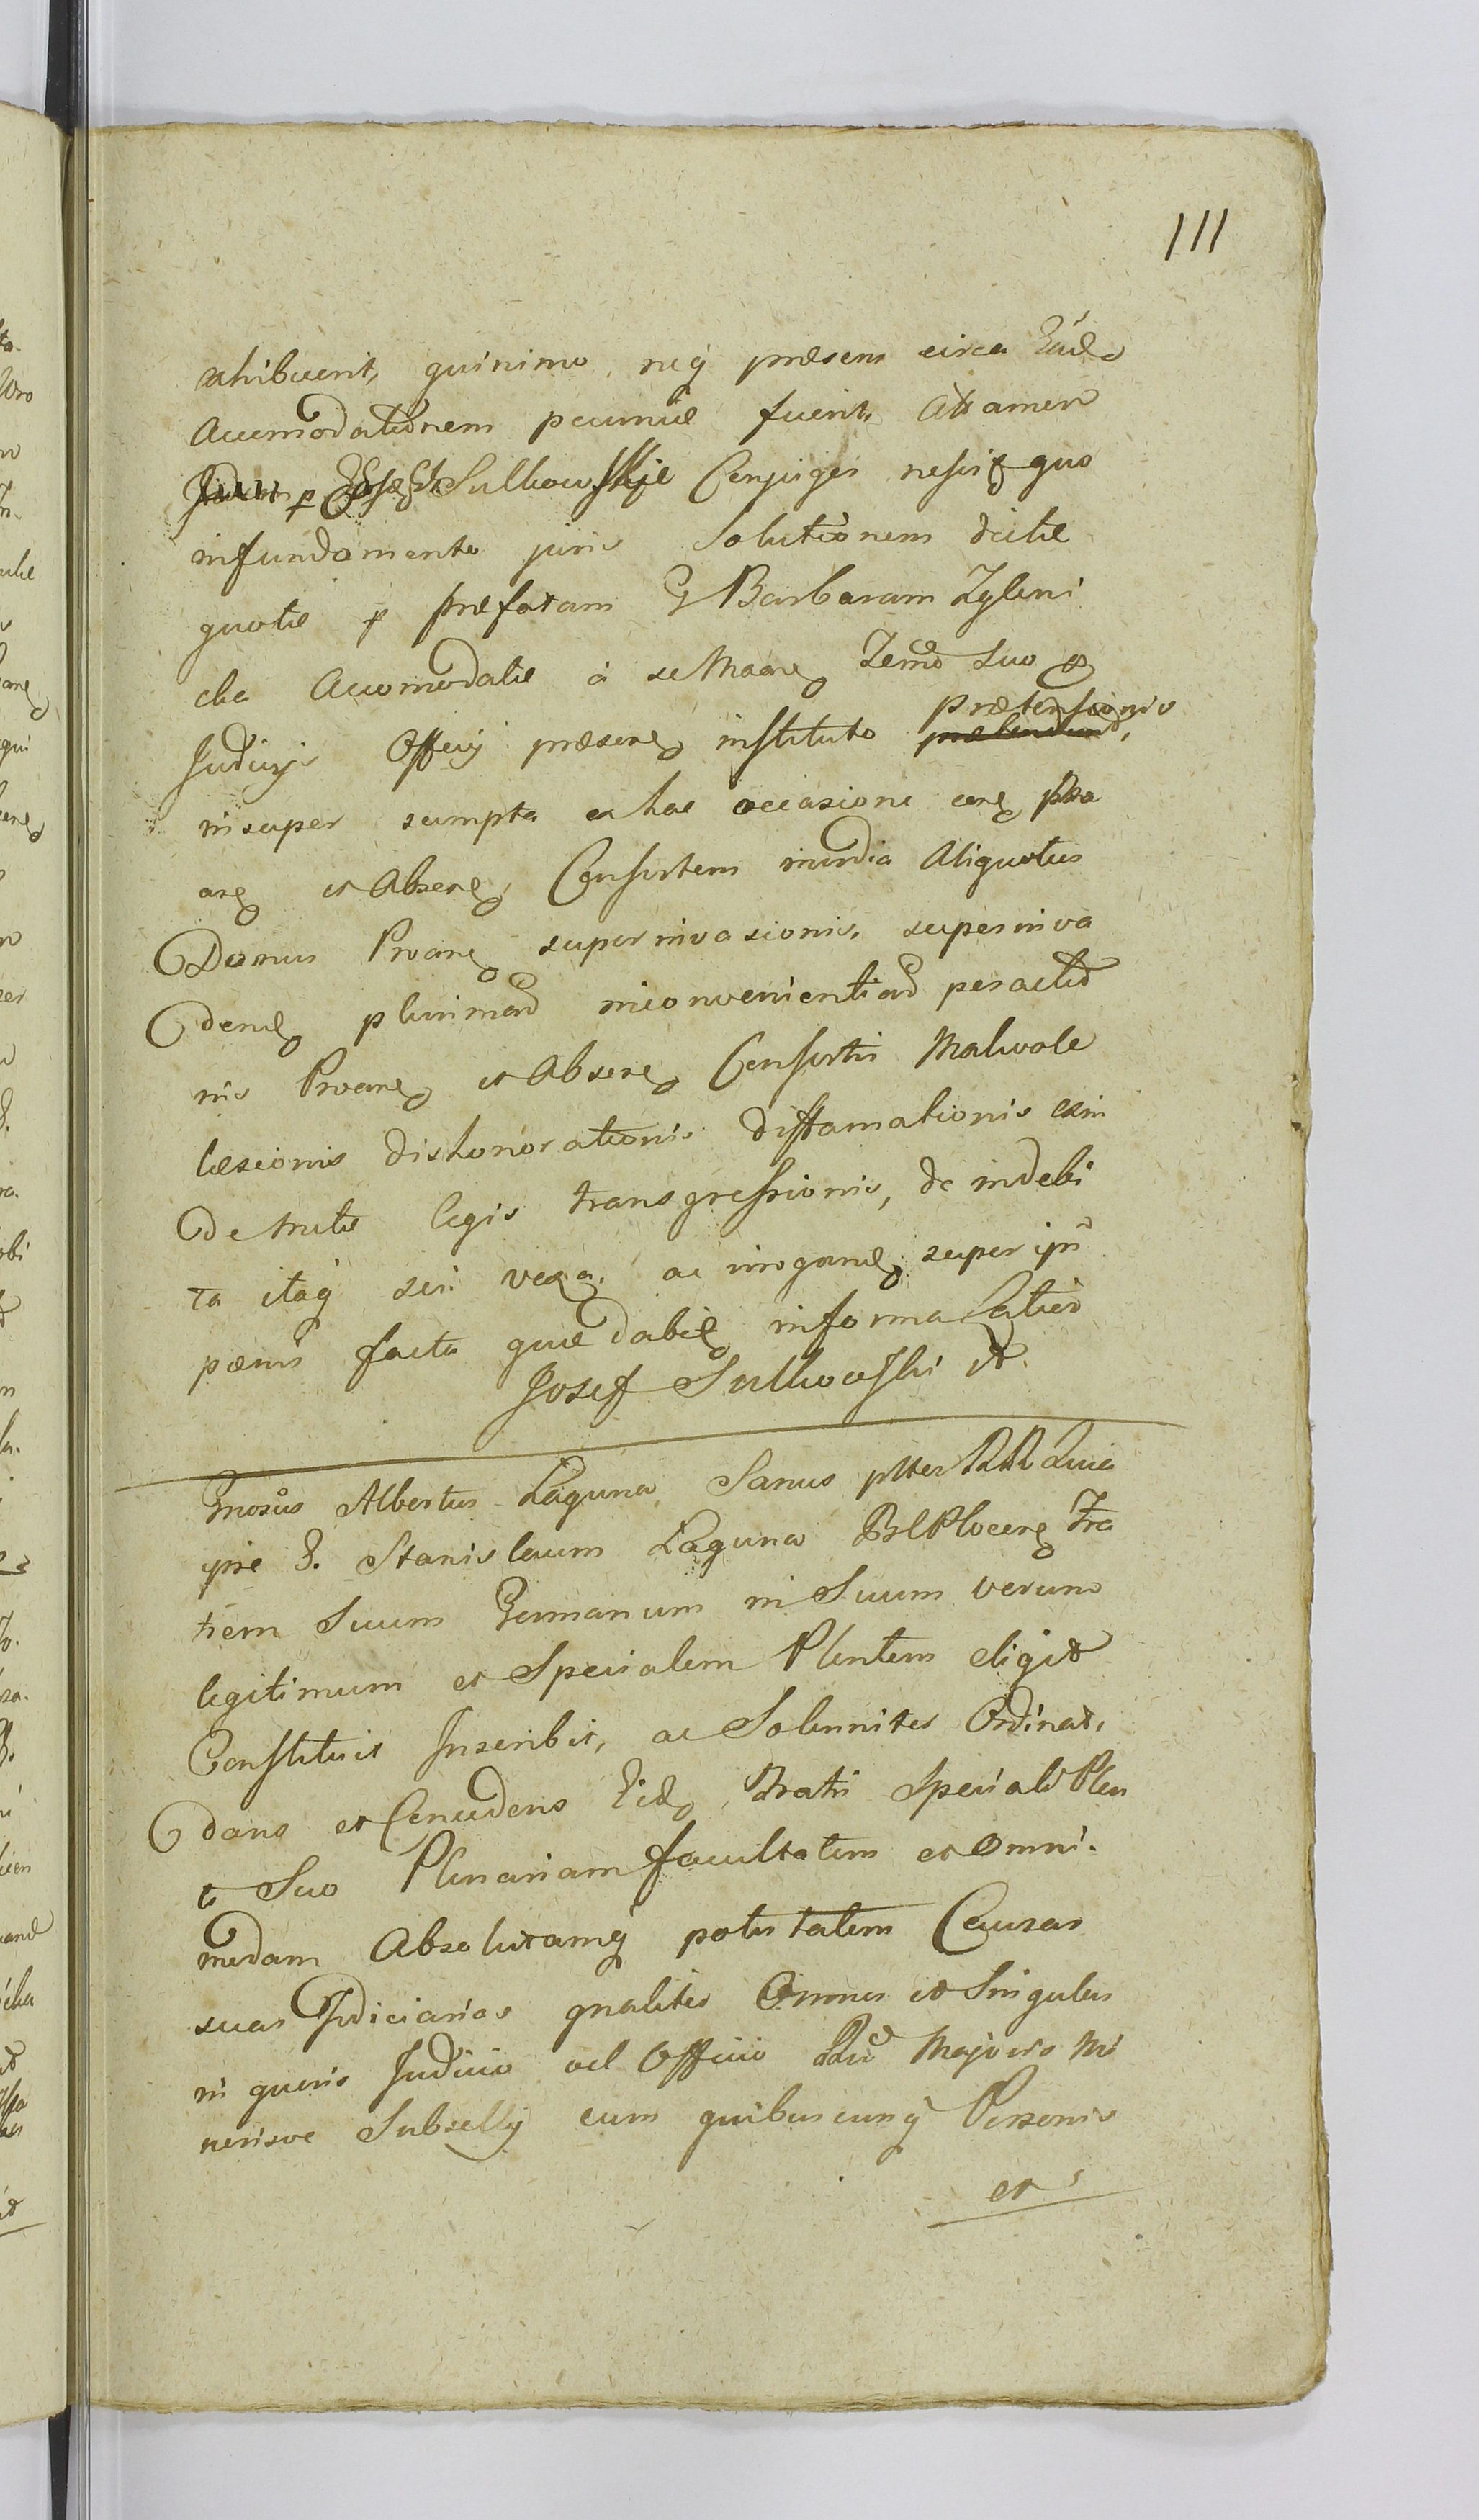 111
exhibuerit, quinimo neq praesens circa Eand
Accomodationem pecuniae fuerit, Attamen
Sulkowskie Conjuges nescit quo
in fundamento juris Solutionem dictae
quotae p praefatam G Barbaram Zyleni
cka Accomodatae à se Maare Termo suo
Judicys Officij praesens instituto praetensionis
insuper sumpta ex hac occasione erg Pro
are et Absen Consortem invidia Aliquoties
Domus Proare superinvasionis, superinva
dend plurimar inconvenientiar peractio
nis Proare et Absen Consortis Malvole
laesionis dishonorationis diffamationis exin
de mutae legis transgressionis, de indebi
ta itaq sui vexa. ac irrogand super ipm
paenis facta quae dabit informa Latius
Josef Sulkowski
Gnosus Albertus Laguna Sanus ptter RR Quia
ipse G. Stanislaum Laguna Plocen Fra
trem Suum Germanum in Suum verum
legitimum et Specialem Plentem eligit
Constituit Inscribit, ac Solenniter Ordinat,
dans et Concedens Eid Fratri Speciali Plen
t Suo Plenariam facultatem et Omni.
modam Absolutamq potestatem Causas
suas Judiciarias gnaliter Omnes et Singulas
in quovis Judicio vel Officio Rni Majoris Mi
norisve Subsellij cum quibuscunq Personis
et